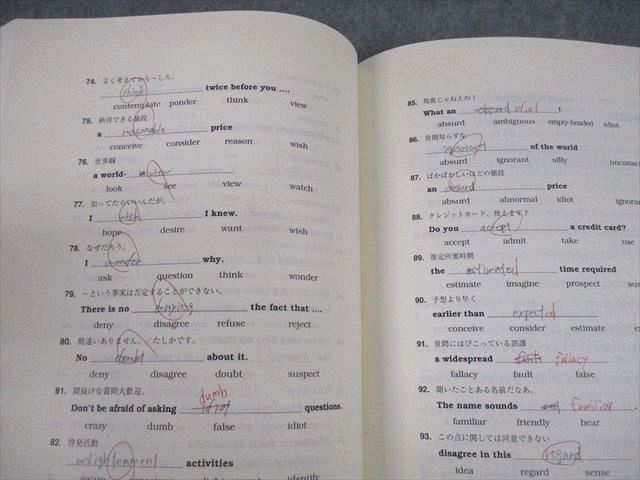 74. よく考えてから〜しろ。
think twice before you ....
contemplate ponder think view
75. 納得できる値段
a reasonable price
conceive consider reason wish
76. 世界観
a world- view
look see view watch
77. 知ってたらいいんだが。
I wish I knew.
hope desire want wish
78. なぜだろう。
I wonder why.
ask question think wonder
79. 〜という事実は否定することができない。
There is no denying the fact that ....
deny disagree refuse reject
80. 間違いありません。たしかです。
No doubt about it.
deny disagree doubt suspect
81. 間抜けな質問大歓迎。
dumb
Don't be afraid of asking idiot questions.
crazy dumb false idiot
82. 啓発活動
enlightenment activities
identify
85. 馬鹿じゃねえの！
What an absurd idiot !
absurd ambiguous empty-headed idiot
86. 世間知らずな
ignorant of the world
absurd ignorant silly
87. ばかばかしいほどの値段
an absurd price
absurd abnormal idiot
88. クレジットカード、使えます？
Do you accept a credit card?
accept admit take use
89. 推定所要時間
the estimated time required
estimate imagine prospect
90. 予想より早く
earlier than expected
conceive consider estimate
91. 世間にはびこっている誤謬
a widespread fault fallacy
fallacy fault false
92. 聞いたことある名前だなあ。
The name sounds familiar
familiar friendly hear
93. この点に関しては同意できない
disagree in this regard
idea regard sense